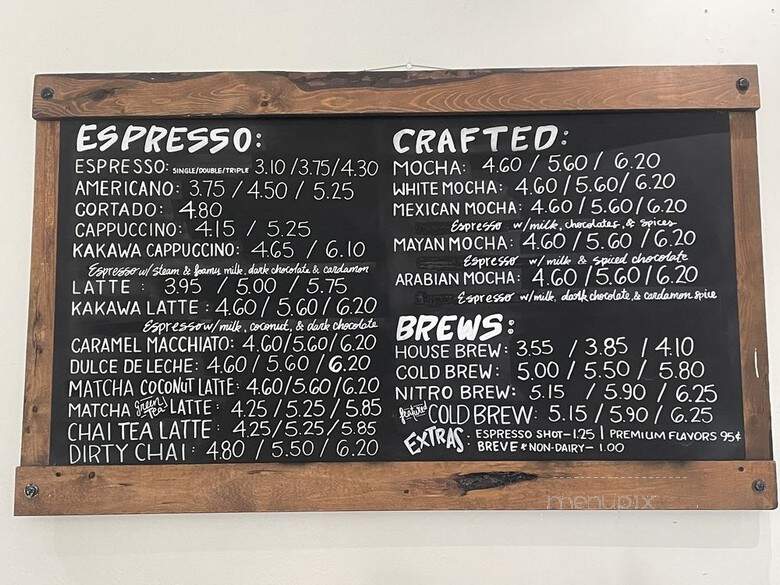 ESPRESSO:
ESPRESSO: SINGLE/DOUBLE/TRIPLE 3.10/3.75/4.30
AMERICANO: 3.75 / 4.50 / 5.25
CORTADO: 4.80
CAPPUCCINO: 4.15 / 5.25
KAKAWA CAPPUCCINO: 4.65 / 6.10
Espresso w/ steam & foamy milk, dark chocolate & cardamon
LATTE : 3.95 / 5.00 / 5.75
KAKAWA LATTE : 4.60/ 5.60/ 6.20
Espresso w/ milk, coconut, & dark chocolate
CARAMEL MACCHIATO: 4.60/5.60/6.20
DULCE DE LECHE: 4.60/ 5.60 /6.20
MATCHA COCONUT LATTE: 4.60/5.60/6.20
MATCHA green tea LATTE : 4.25 / 5.25 / 5.85
CHAI TEA LATTE : 4.25/ 5.25/ 5.85
DIRTY CHAI : 4.80 / 5.50 / 6.20
CRAFTED:
MOCHA: 4.60 / 5.60 / 6.20
WHITE MOCHA: 4.60 / 5.60/ 6.20
MEXICAN MOCHA: 4.60 / 5.60/ 6.20
Espresso w/milk, chocolates, & spices
MAYAN MOCHA: 4.60 / 5.60 / 6.20
Espresso w/ milk & spiced chocolate
ARABIAN MOCHA: 4.60 / 5.60/ 6.20
Espresso w/milk, dark chocolate, & cardamon spice
BREWS:
HOUSE BREW: 3.55 / 3.85 / 4.10
COLD BREW: 5.00 / 5.50 / 5.80
NITRO BREW: 5.15 / 5.90 / 6.25
featured COLD BREW: 5.15 / 5.90 / 6.25
EXTRAS: ESPRESSO SHOT-1.25 | PREMIUM FLAVORS 95¢
BREVE & NON-DAIRY - 1.00
menupix